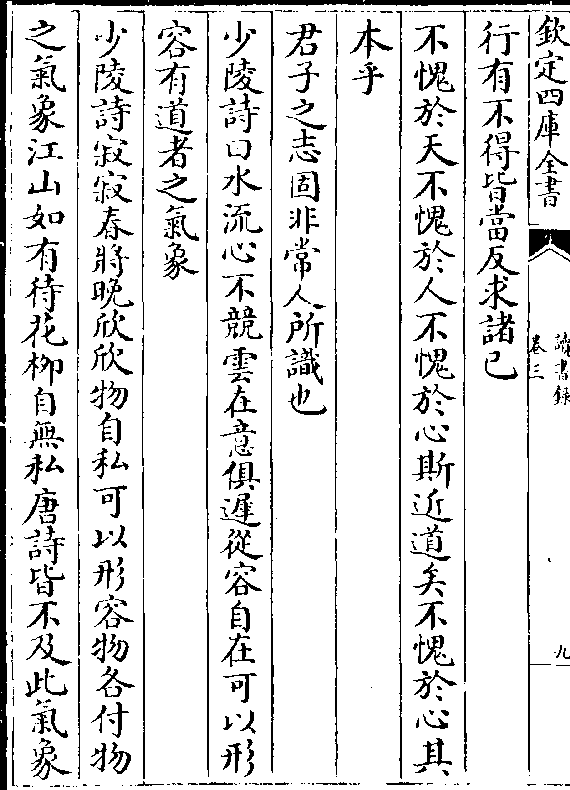 欽定四庫全書
讀書録
卷三
九
行有不得皆當反求諸己
不愧於天不愧於人不愧於心斯近道矣不愧於心其
本乎
君子之志固非常人所識也
少陵詩曰水流心不競雲在意俱遲從容自在可以形
容有道者之氣象
少陵詩寂寂春將晚欣欣物自私可以形容物各付物
之氣象江山如有待花柳自無私唐詩皆不及此氣象